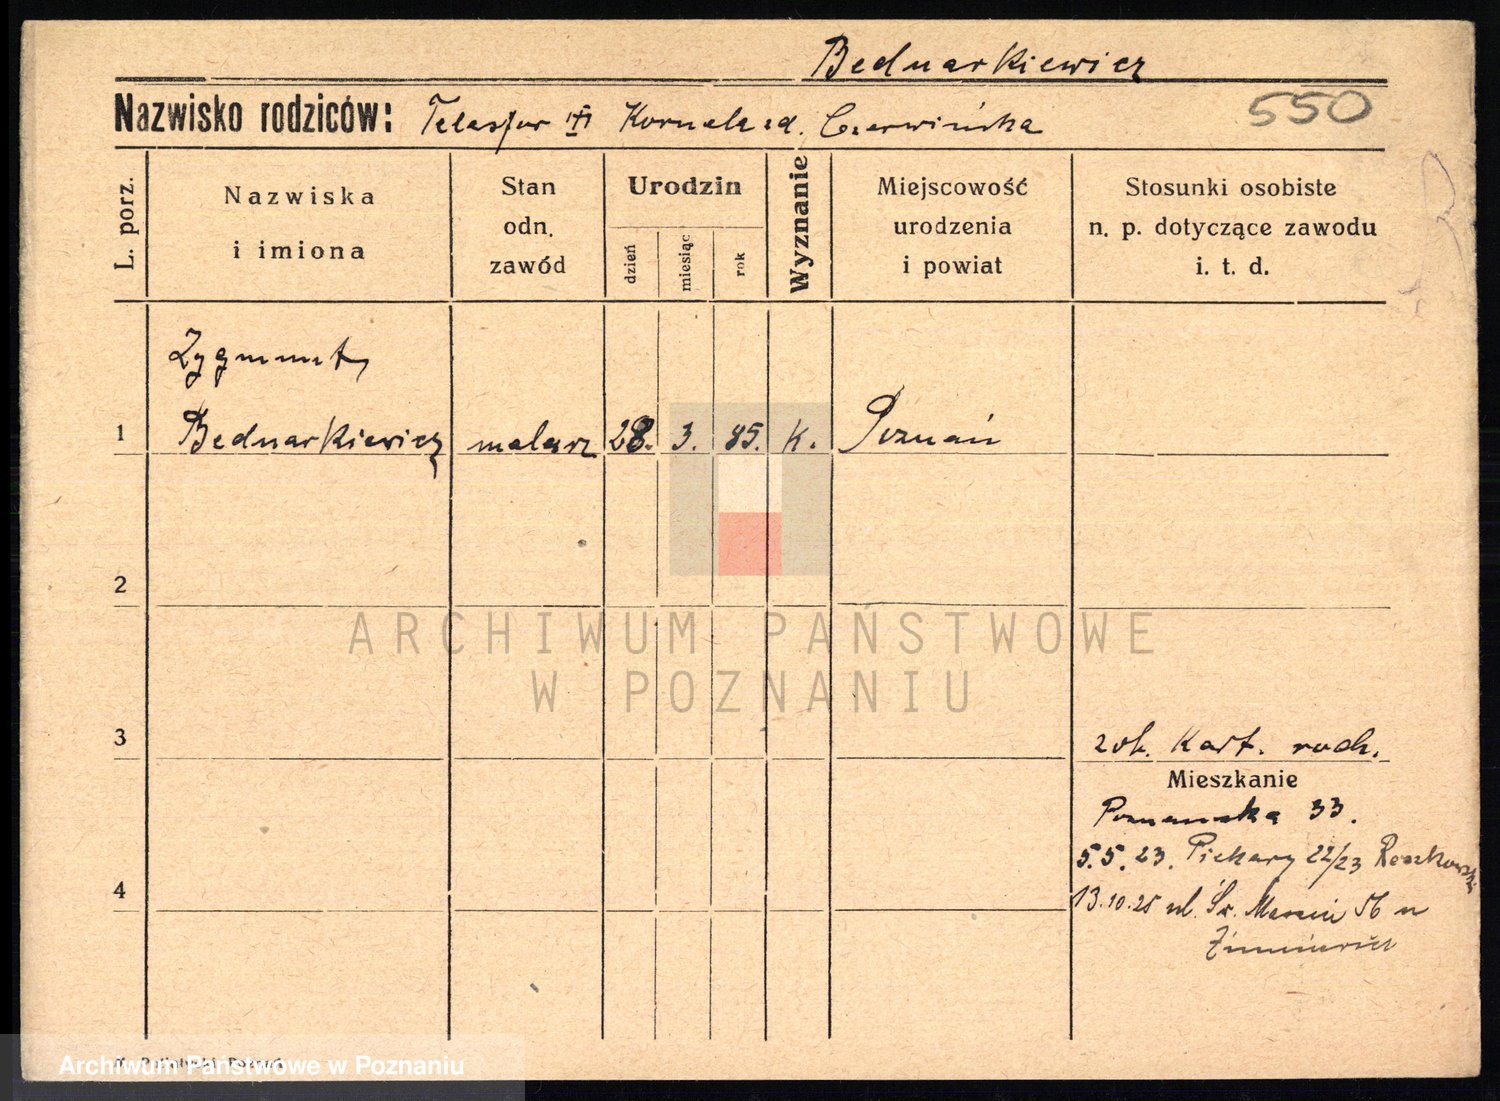 Bednarkiewicz
Nazwisko rodziców: Telesfor i Kornela zd. Czerwińska
550
L. porz.
Nazwiska
i imiona
Stan
odn.
zawód
Urodzin
dzień
miesiąc
rok
Wyznanie
Miejscowość
urodzenia
i powiat
Stosunki osobiste
n. p. dotyczące zawodu
i. t. d.
Zygmunt,
1 Bednarkiewicz malarz 28. 3. 85. k. Poznań
2
ARCHIWUM PAŃSTWOWE
W POZNANIU
3
zob. Kart. rodz.
Mieszkanie
Poznańska 33.
5.5.23. Piekary 22/23
4
13.10.25 ul. Św. Marcin 56 u
Archiwum Państwowe w Poznaniu